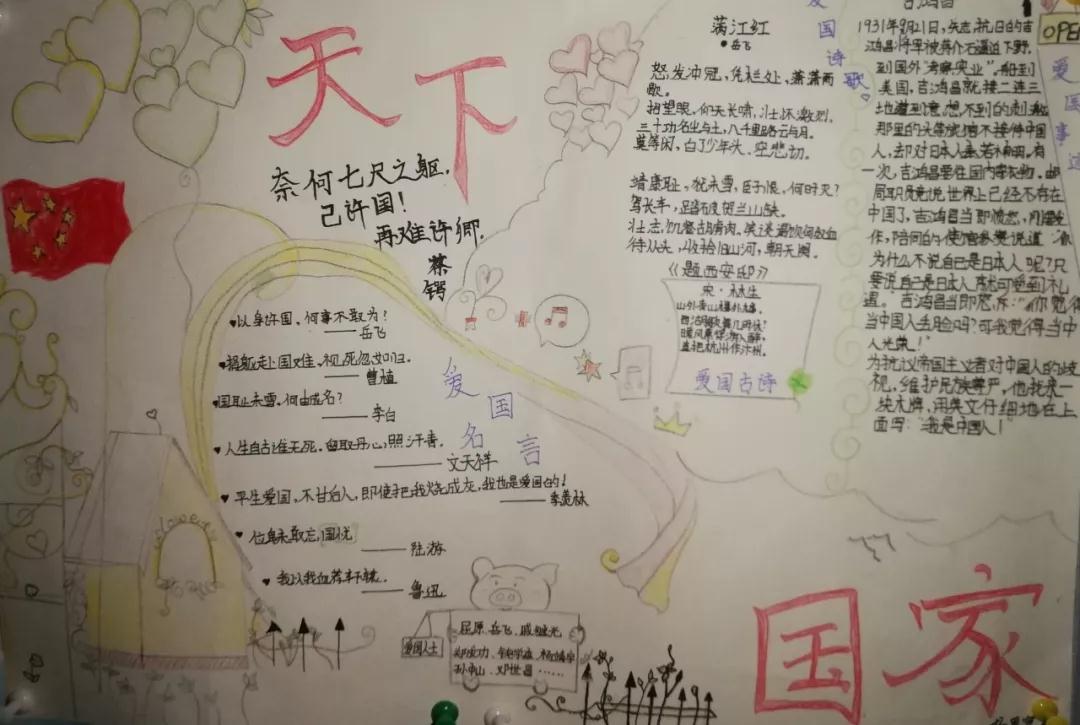 天下
奈何七尺之躯,
己许国!
再难许卿.
蔡锷
♥以身许国、何事不敢为?
——岳飞
♥捐躯赴国难、视死忽如归.
——曹植
♥国耻未雪、何由成名?
——李白
♥人生自古谁无死、留取丹心照汗青.
——文天祥
♥平生爱国、不甘后人,即使把我烧成灰,我也是爱国的!
——季羡林
♥位卑未敢忘国忧
——陆游
♥我以我血荐轩辕.
——鲁迅
爱国名言
爱国人士
屈原、岳飞、戚继光
郑成功、
孙中山、邓世昌……
爱国诗歌
满江红
•岳飞
怒发冲冠,凭栏处、萧萧雨
歇。
抬望眼,仰天长啸,壮怀激烈.
三十功名尘与土,八千里路云与月。
莫等闲,白了少年头、空悲切.
靖康耻,犹未雪,臣子恨,何时灭?
驾长车,踏破贺兰山缺.
壮志饥餐胡虏肉。笑谈渴饮匈奴血
待从头,收拾旧山河,朝天阙。
《题西安邸》
宋·林生
山外青山楼外楼,
西湖歌舞几时休?
暖风熏得游人醉,
直把杭州作汴州。
爱国古诗
吉鸿昌
1931年9月21日,矢志抗日的吉
鸿昌将军被蒋介石逼迫下野,
到国外“考察实业”。船到
美国,吉鸿昌就接二连三
地遭到意想不到的刺激
那里的头等旅馆不接待中国
人,却对日本人奉若神明。有
一次,吉鸿昌要往国内寄衣物.邮
局职员竟说世界上已经不存在
中国了,吉鸿昌当即愤怒,
作,陪同的使馆参赞说道:“你
为什么不说自己是日本人呢?只
要说自己是日本人就可受到礼
遇。吉鸿昌当即怒斥:“你觉得
当中国人丢脸吗?可我觉得当中
人光荣!”
为抗议帝国主义者对中国人的歧
视,维护民族尊严,他找来一
块木牌,用英文仔细地在上
面写:“我是中国人!”
OPEN
爱国事迹
国家